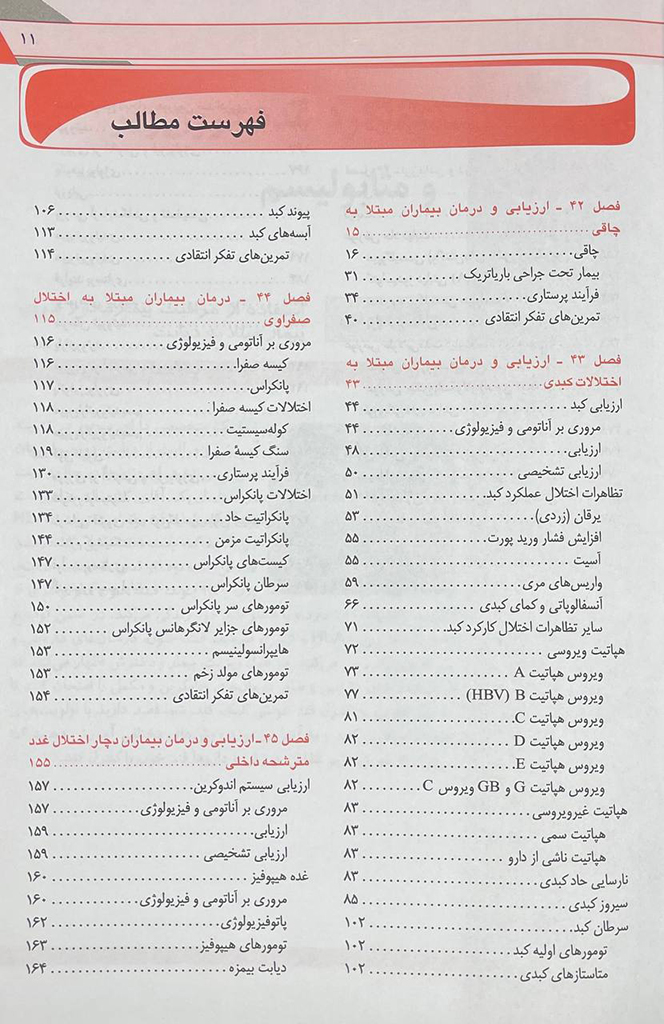 ۱۱
فهرست مطالب
فصل ۴۲ - ارزیابی و درمان بیماران مبتلا به
چاقی ........ ۱۵
چاقی ........ ۱۶
بیمار تحت جراحی باریاتریک ........ ۳۱
فرآیند پرستاری ........ ۳۴
تمرین‌های تفکر انتقادی ........ ۴۰
فصل ۴۳ - ارزیابی و درمان بیماران مبتلا به
اختلالات کبدی ........ ۴۳
ارزیابی کبد ........ ۴۴
مروری بر آناتومی و فیزیولوژی ........ ۴۴
ارزیابی ........ ۴۸
ارزیابی تشخیصی ........ ۵۰
تظاهرات اختلال عملکرد کبد ........ ۵۱
یرقان (زردی) ........ ۵۳
افزایش فشار ورید پورت ........ ۵۵
آسیت ........ ۵۵
واریس‌های مری ........ ۵۹
آنسفالوپاتی و کمای کبدی ........ ۶۶
سایر تظاهرات اختلال کارکرد کبد ........ ۷۱
هپاتیت ویروسی ........ ۷۲
ویروس هپاتیت A ........ ۷۳
ویروس هپاتیت B (HBV) ........ ۷۷
ویروس هپاتیت C ........ ۸۱
ویروس هپاتیت D ........ ۸۲
ویروس هپاتیت E ........ ۸۲
ویروس هپاتیت G و GB ویروس C ........ ۸۲
هپاتیت غیرویروسی ........ ۸۳
هپاتیت سمی ........ ۸۳
هپاتیت ناشی از دارو ........ ۸۳
نارسایی حاد کبدی ........ ۸۳
سیروز کبدی ........ ۸۵
سرطان کبد ........ ۱۰۲
تومورهای اولیه کبد ........ ۱۰۲
متاستازهای کبدی ........ ۱۰۲
پیوند کبد ........ ۱۰۶
آبسه‌های کبد ........ ۱۱۳
تمرین‌های تفکر انتقادی ........ ۱۱۴
فصل ۴۴ - درمان بیماران مبتلا به اختلال
صفراوی ........ ۱۱۵
مروری بر آناتومی و فیزیولوژی ........ ۱۱۶
کیسه صفرا ........ ۱۱۶
پانکراس ........ ۱۱۷
اختلالات کیسه صفرا ........ ۱۱۸
کوله‌سیستیت ........ ۱۱۸
سنگ کیسهٔ صفرا ........ ۱۱۹
فرآیند پرستاری ........ ۱۳۰
اختلالات پانکراس ........ ۱۳۳
پانکراتیت حاد ........ ۱۳۴
پانکراتیت مزمن ........ ۱۴۴
کیست‌های پانکراس ........ ۱۴۷
سرطان پانکراس ........ ۱۴۷
تومورهای سر پانکراس ........ ۱۵۰
تومورهای جزایر لانگرهانس پانکراس ........ ۱۵۲
هایپرانسولینیسم ........ ۱۵۳
تومورهای مولد زخم ........ ۱۵۳
تمرین‌های تفکر انتقادی ........ ۱۵۴
فصل ۴۵ - ارزیابی و درمان بیماران دچار اختلال غدد
مترشحه داخلی ........ ۱۵۵
ارزیابی سیستم اندوکرین ........ ۱۵۷
مروری بر آناتومی و فیزیولوژی ........ ۱۵۷
ارزیابی ........ ۱۵۹
ارزیابی تشخیصی ........ ۱۵۹
غده هیپوفیز ........ ۱۶۰
مروری بر آناتومی و فیزیولوژی ........ ۱۶۰
پاتوفیزیولوژی ........ ۱۶۲
تومورهای هیپوفیز ........ ۱۶۳
دیابت بیمزه ........ ۱۶۴